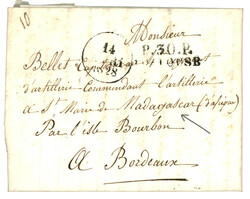 10
Monsieur
14
1828
P.30.P.
Bellet Capitaine
d'artillerie Commandant l'artillerie
a Ste Marie de Madagascar (d'afrique)
Par l'isle Bourbon
A Bordeaux